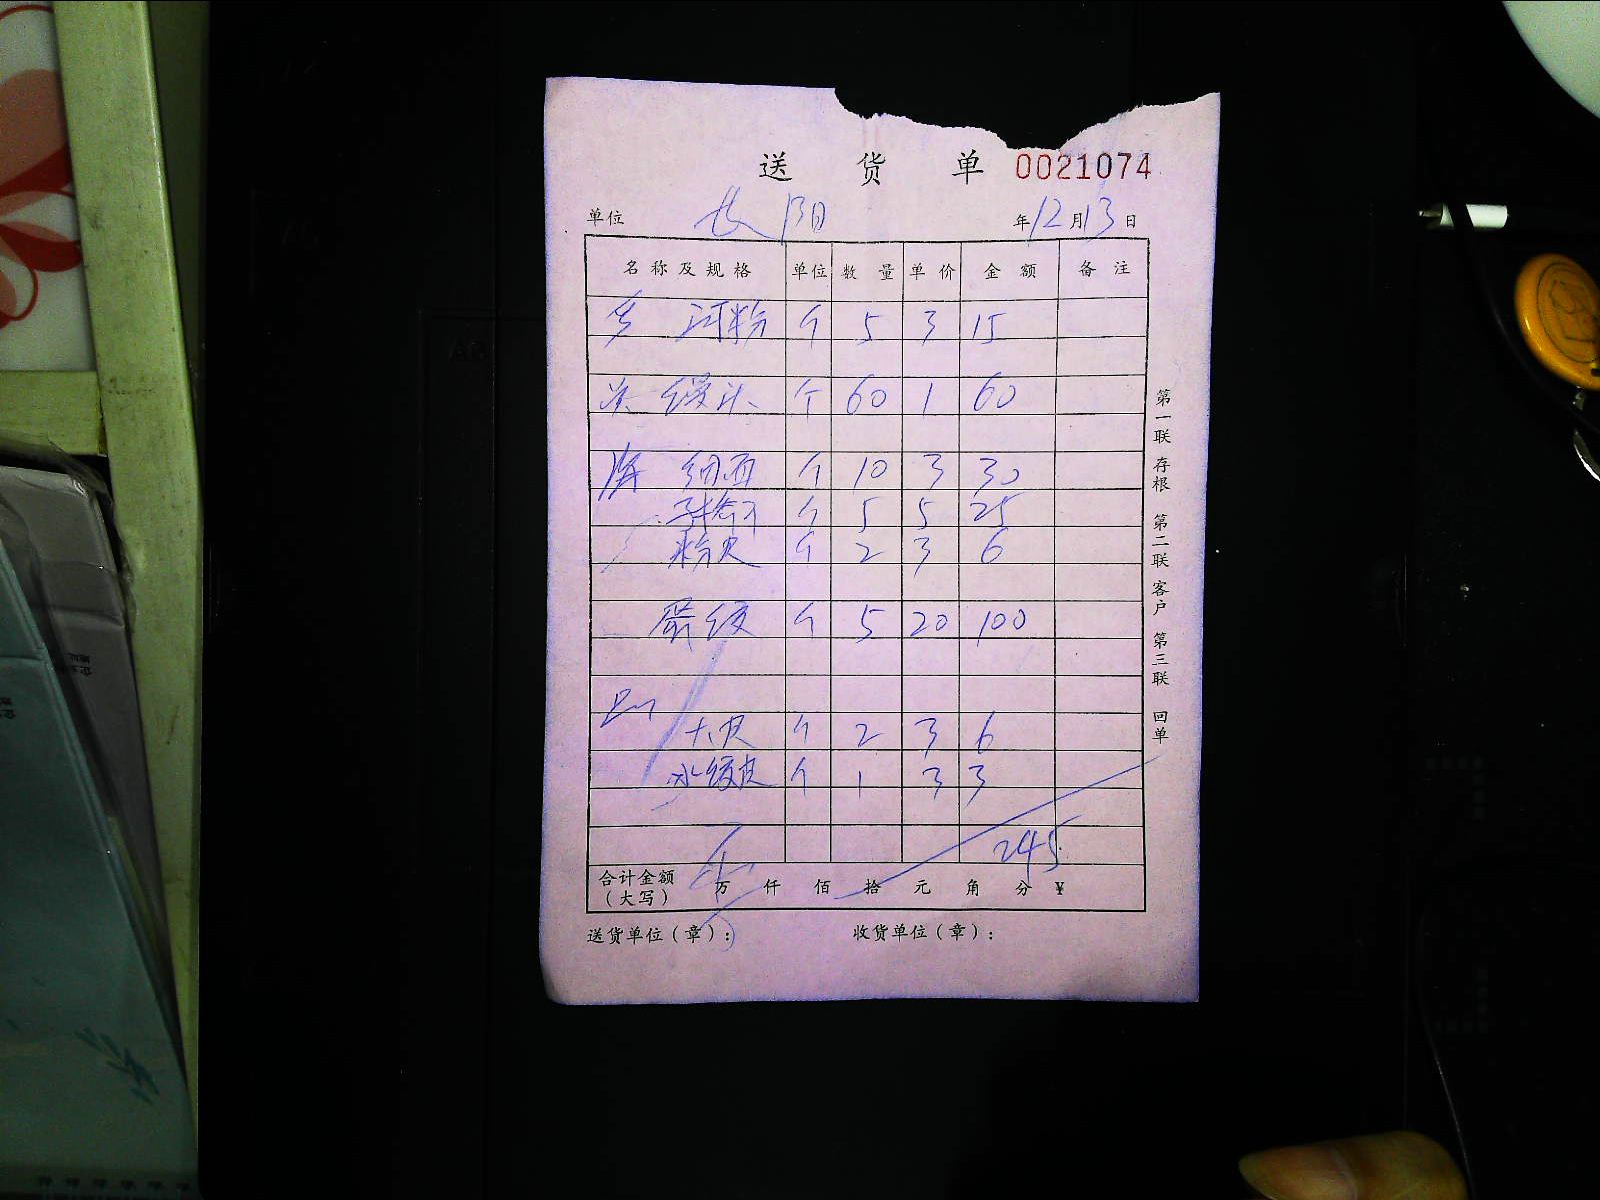 送 货 单 0021074
单位 长阳 年12月13日
名称及规格 单位 数量 单价 金额 备注
河粉 个 5 3 15
馒头 个 60 1 60
细面 个 10 3 30
个 5 5 25
粉皮 个 2 3 6
个 5 20 100
大皮 个 2 3 6
水饺皮 个 1 3 3
245
合计金额(大写) 万 仟 佰 拾 元 角 分 ¥
送货单位(章): 收货单位(章):
第一联 存根 第二联 客户 第三联 回单